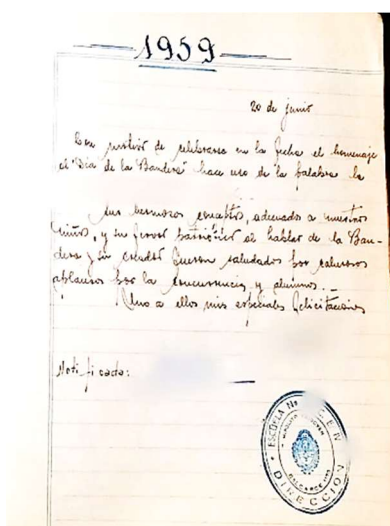 1959
20 de junio
Con motivo de celebrarse en la fecha el homenaje
al "Día de la Bandera" hace uso de la palabra la
Sus hermosos conceptos, adecuados a nuestros
niños, y su fervor patriótico al hablar de la Ban-
dera y su creador fueron saludados por calurosos
aplausos por la concurrencia y alumnos. -
Uno a ellos mis especiales felicitaciones
Notificada:
ESCUELA No
DIRECCION